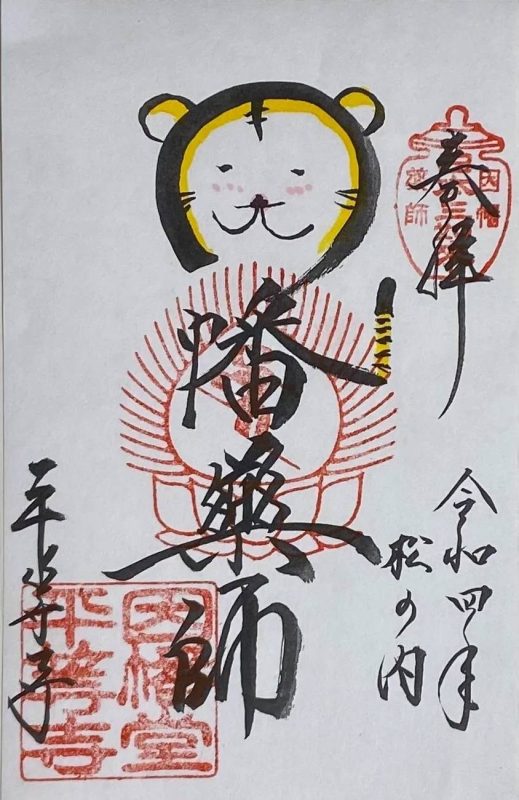 奉拝
令和四年
松の内
幡薬師
平等寺
因幡
薬師
因幡堂
平等寺